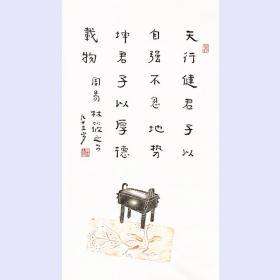 天行健君子以
自强不息地势
坤君子以厚德
载物 周易